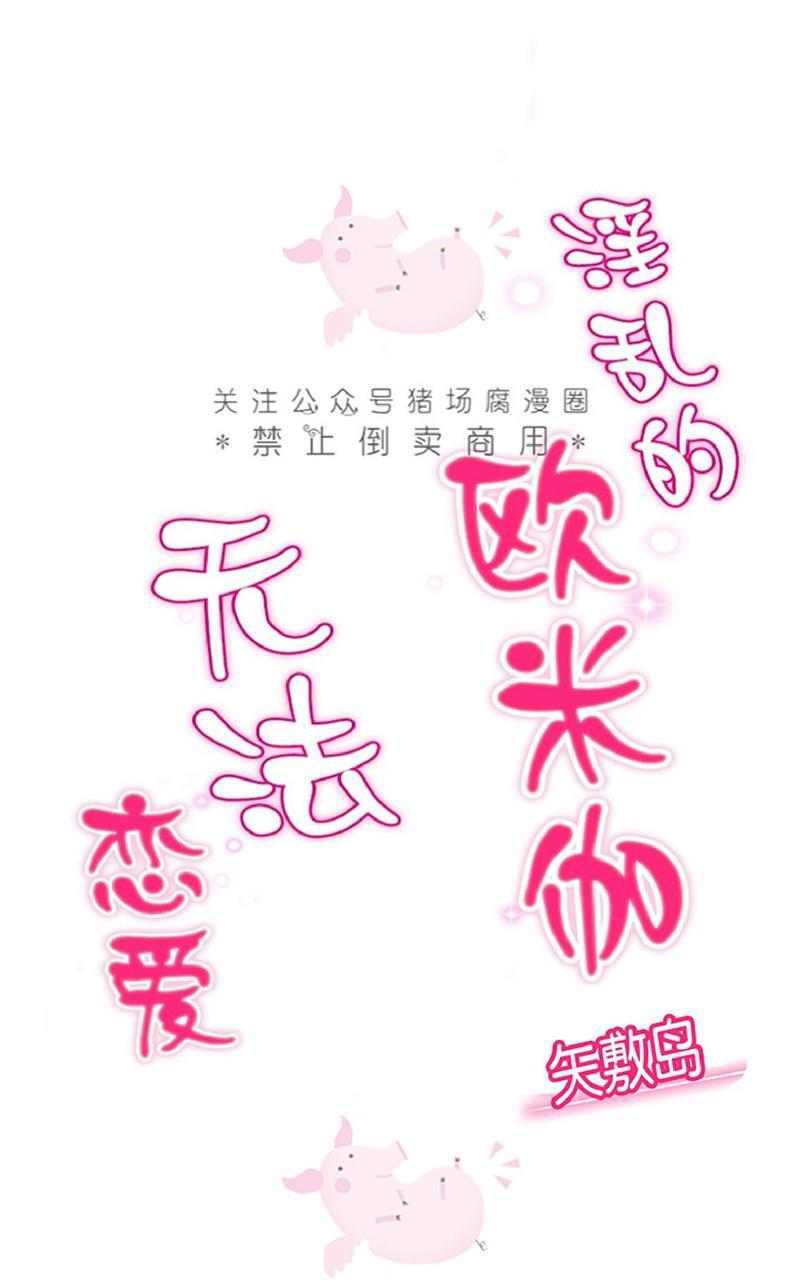 淫乱的
欧米伽
无法
恋爱
矢敷岛
关注公众号猪场腐漫圈
*禁止倒卖商用*